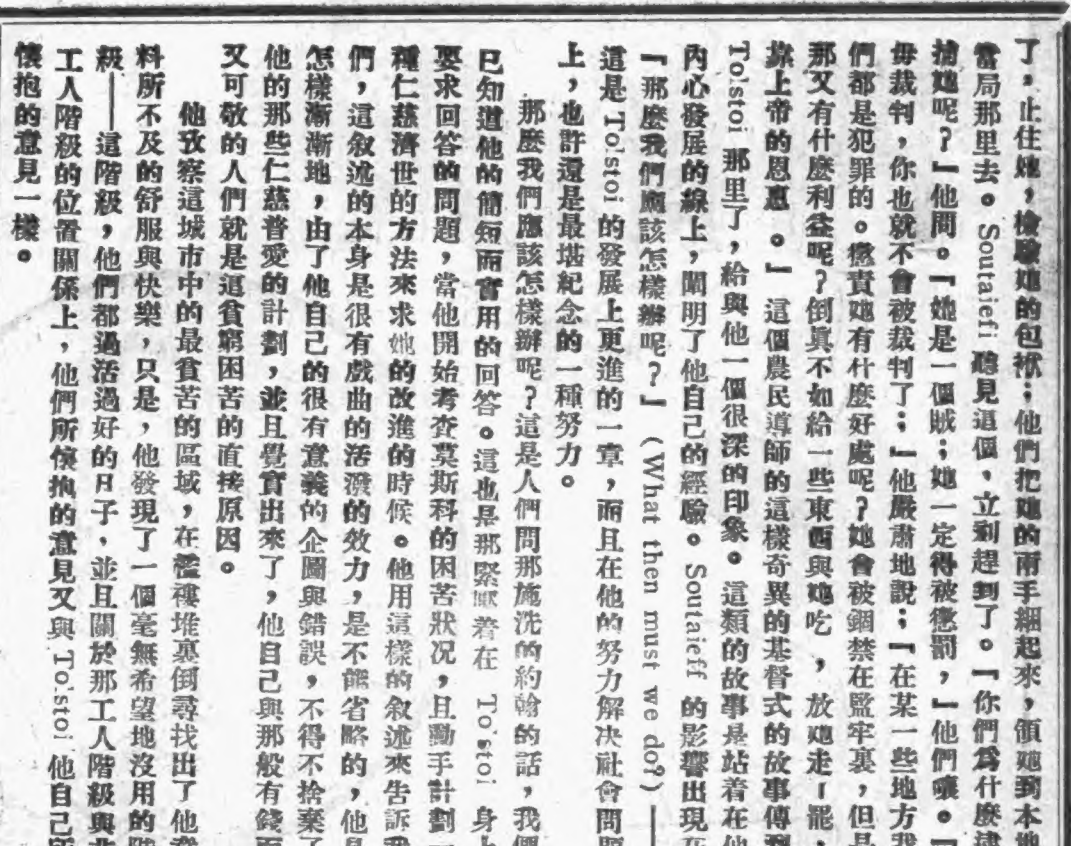 了，止住她，檢驗她的包袱；他們把她的兩手綑起來，領她到本地
當局那里去。Soutaieff 聽見這個，立刻趕到了。『你們爲什麼逮
捕她呢？』他問。『她是一個賊；她一定得被懲罰，』他們嚷。『
毋裁判，你也就不會被裁判了；』他嚴肅地說；『在某一些地方我
們都是犯罪的。懲責她有什麼好處呢？她會被錮禁在監牢裏，但是
那又有什麼利益呢？倒眞不如給一些東西與她吃，放她走！罷，
靠上帝的恩惠。』這個農民導師的這樣奇異的基督式的故事傳到
Tolstoi 那里了，給與他一個很深的印象。這類的故事是站着在他
內心發展的線上，闡明了他自己的經驗。Soutaieff 的影響出現在
『那麼我們應該怎樣辦呢？』(What then must we do?)——
這是 Tolstoi 的發展上更進的一章，而且在他的努力解決社會問題
上，也許還是最堪紀念的一種努力。
那麼我們應該怎樣辦呢？這是人們問那施洗的約翰的話，我們
已知道他的簡短而實用的回答。這也是那緊壓着在 Tolstoi 身上
要求回答的問題，當他開始考查莫斯科的困苦狀況，且動手計劃一
種仁慈濟世的方法來求她的改進的時候。他用這樣的敘述來告訴我
們，這敘述的本身是很有戲曲的活潑的效力，是不能省略的，他是
怎樣漸漸地，由了他自己的很有意義的企圖與錯誤，不得不捨棄了
他的那些仁慈普愛的計劃，並且覺實出來了，他自己與那般有錢而
又可敬的人們就是這貧窮困苦的直接原因。
他攷察這城市中的最貧苦的區域，在襤褸堆裏倒尋找出了他意
料所不及的舒服與快樂，只是，他發現了一個毫無希望地沒用的階
級——這階級，他們都過活過好的日子，並且關於那工人階級與非
工人階級的位置關係上，他們所懷抱的意見又與 Tolstoi 他自己所
懷抱的意見一樣。